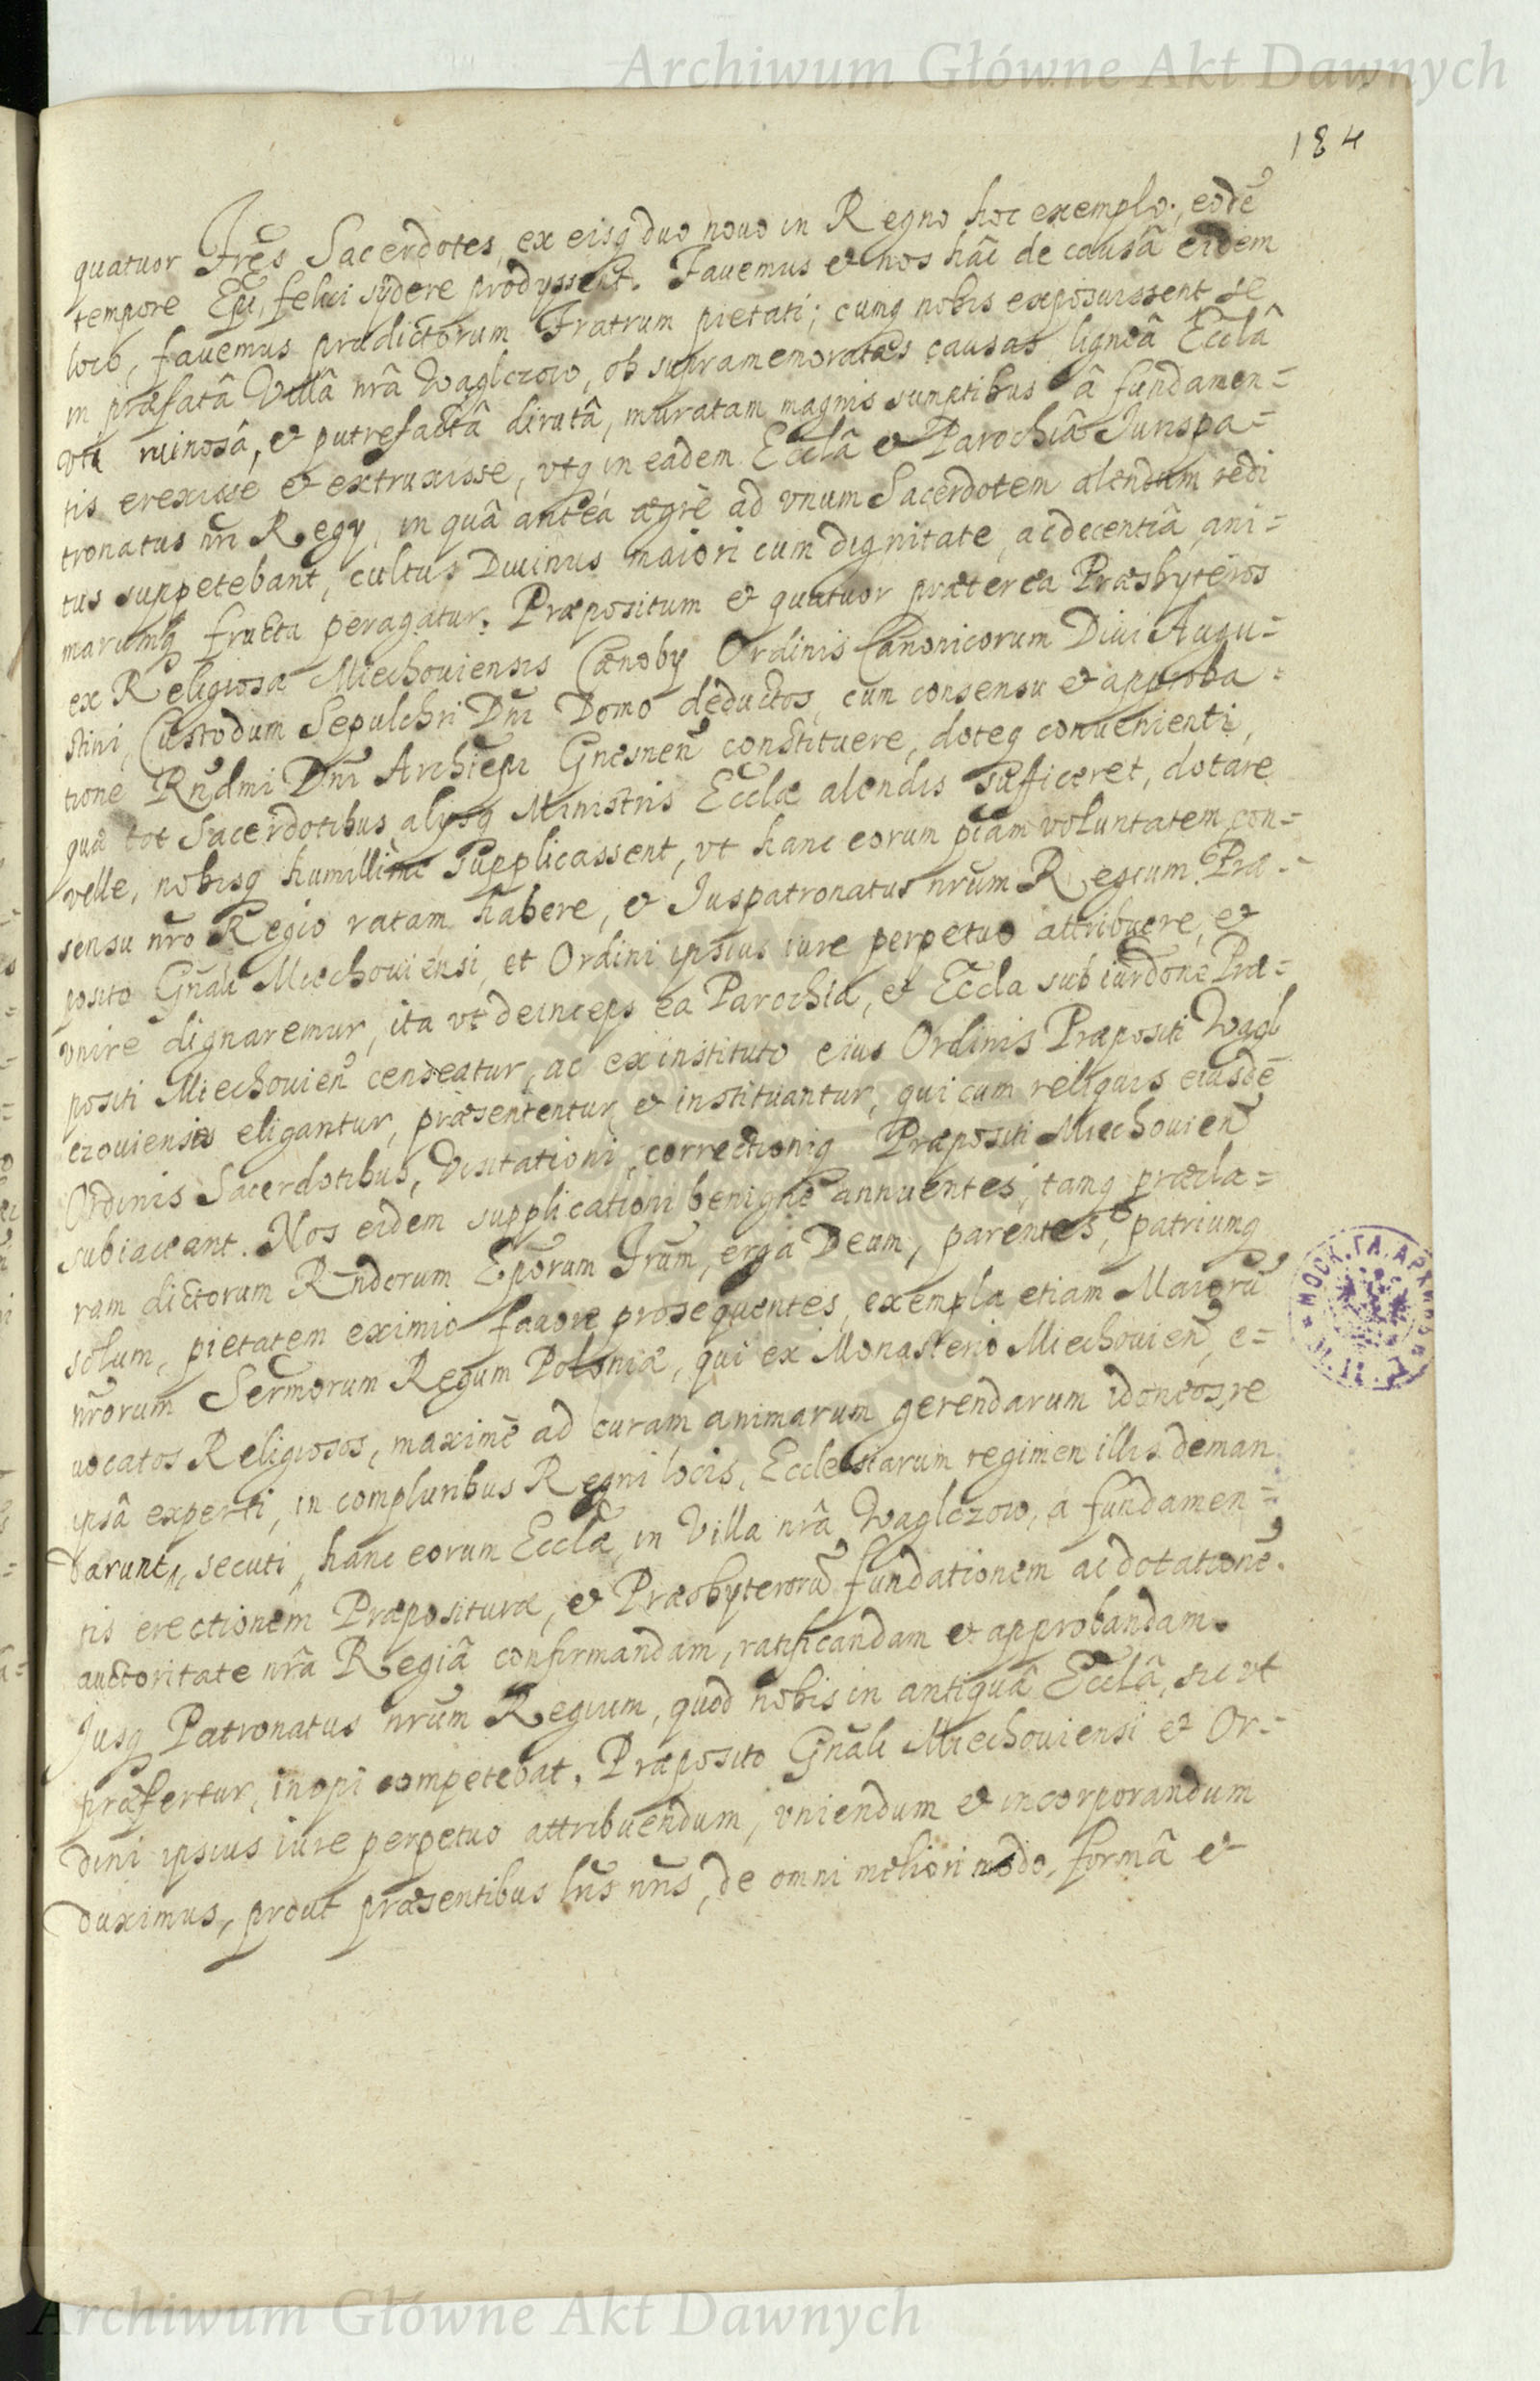 Archiwum Główne Akt Dawnych
184
quatuor Frẽs Sacerdotes, ex eisq duo nouo in Regno hoc exemplo, eodẽ
tempore Epi, felici sydere prodyssent. Fauemus et nos hãc de causâ eidem
loco, fauemus prædictorum Fratrum pietati; cumq nobis exposuissent se
in præfatâ Villâ nrâ Waglczow, ob supramemoratas causas ligneâ Ecclâ
vti ruinosâ, et putrefactâ dirutâ, muratam magnis sumptibus â fundamen=
tis erexisse et extruxisse, vtq in eadem Ecclâ et Parochiâ Iurispa=
tronatus nri Regy, in quâ anteá ægrè ad vnum Sacerdotem alendum redi
tus suppetebant, cultus Diuinus maiori cum dignitate, ac decentiâ, ani=
marumq fructu peragatur. Præpositum et quatuor præterea Præsbyteros
ex Religiosa Miechouiensis Cænoby Ordinis Canonicorum Diui Augu=
stini, Custodum Sepulchri Dni Domo deductos, cum consensu et approba=
tione Rndmi Dni Archiepi Gnesnen constituere, doteq conuenienti,
quæ tot Sacerdotibus alysq Ministris Ecclæ alendis sufficeret, dotare
velle, nobisq humillimè supplicassent, vt hanc eorum piam voluntatem con=
sensu nro Regio ratam habere, et Iuspatronatus nrum Regium Præ=
posito Gnali Miechouiensi, et Ordini ipsius iure perpetuo attribuere, et
vnire dignaremur, ita vt deinceps ea Parochia, et Eccla sub iurdone Præ=
positi Miechouien censeatur, ac ex instituto eius Ordinis Præpositi Wagl
czouiensis eligantur, præsententur et instituantur, qui cum reliquis eiusdẽ
Ordinis Sacerdotibus, Visitationi, correctioniq Præpositi Miechouien
subiaceant. Nos eidem supplicationi benignè annuentes, tamq præcla=
ram dictorum Rndorum Eporum Frum, erga Deum, parentes, patriumq
solum, pietatem eximio fauore prosequentes, exempla etiam Maiorũ
nrorum Sermorum Regum Poloniæ, qui ex Monasterio Miechouien, e=
uocatos Religiosos, maximè ad curam animarum gerendarum idoneos, re
ipsâ experti, in compluribus Regni locis, Ecclesiarum regimen illis deman
darunt, secuti, hanc eorum Ecclæ, in Villa nrâ Waglczow, á fundamen=
tis erectionem Præposituræ, et Præsbyterorũ fundationem ac dotationẽ.
auctoritate nrâ Regiâ confirmandam, ratificandam et approbandam.
Iusq Patronatus nrum Regium, quod nobis in antiquâ Ecclâ, sic vt
præfertur, inopi competebat, Præposito Gnali Miechouiensi et Or=
dini ipsius iure perpetuo attribuendum, vniendum et incorporandum
duximus, prout præsentibus lris nris, de omni meliori modo, formâ et
Archiwum Główne Akt Dawnych